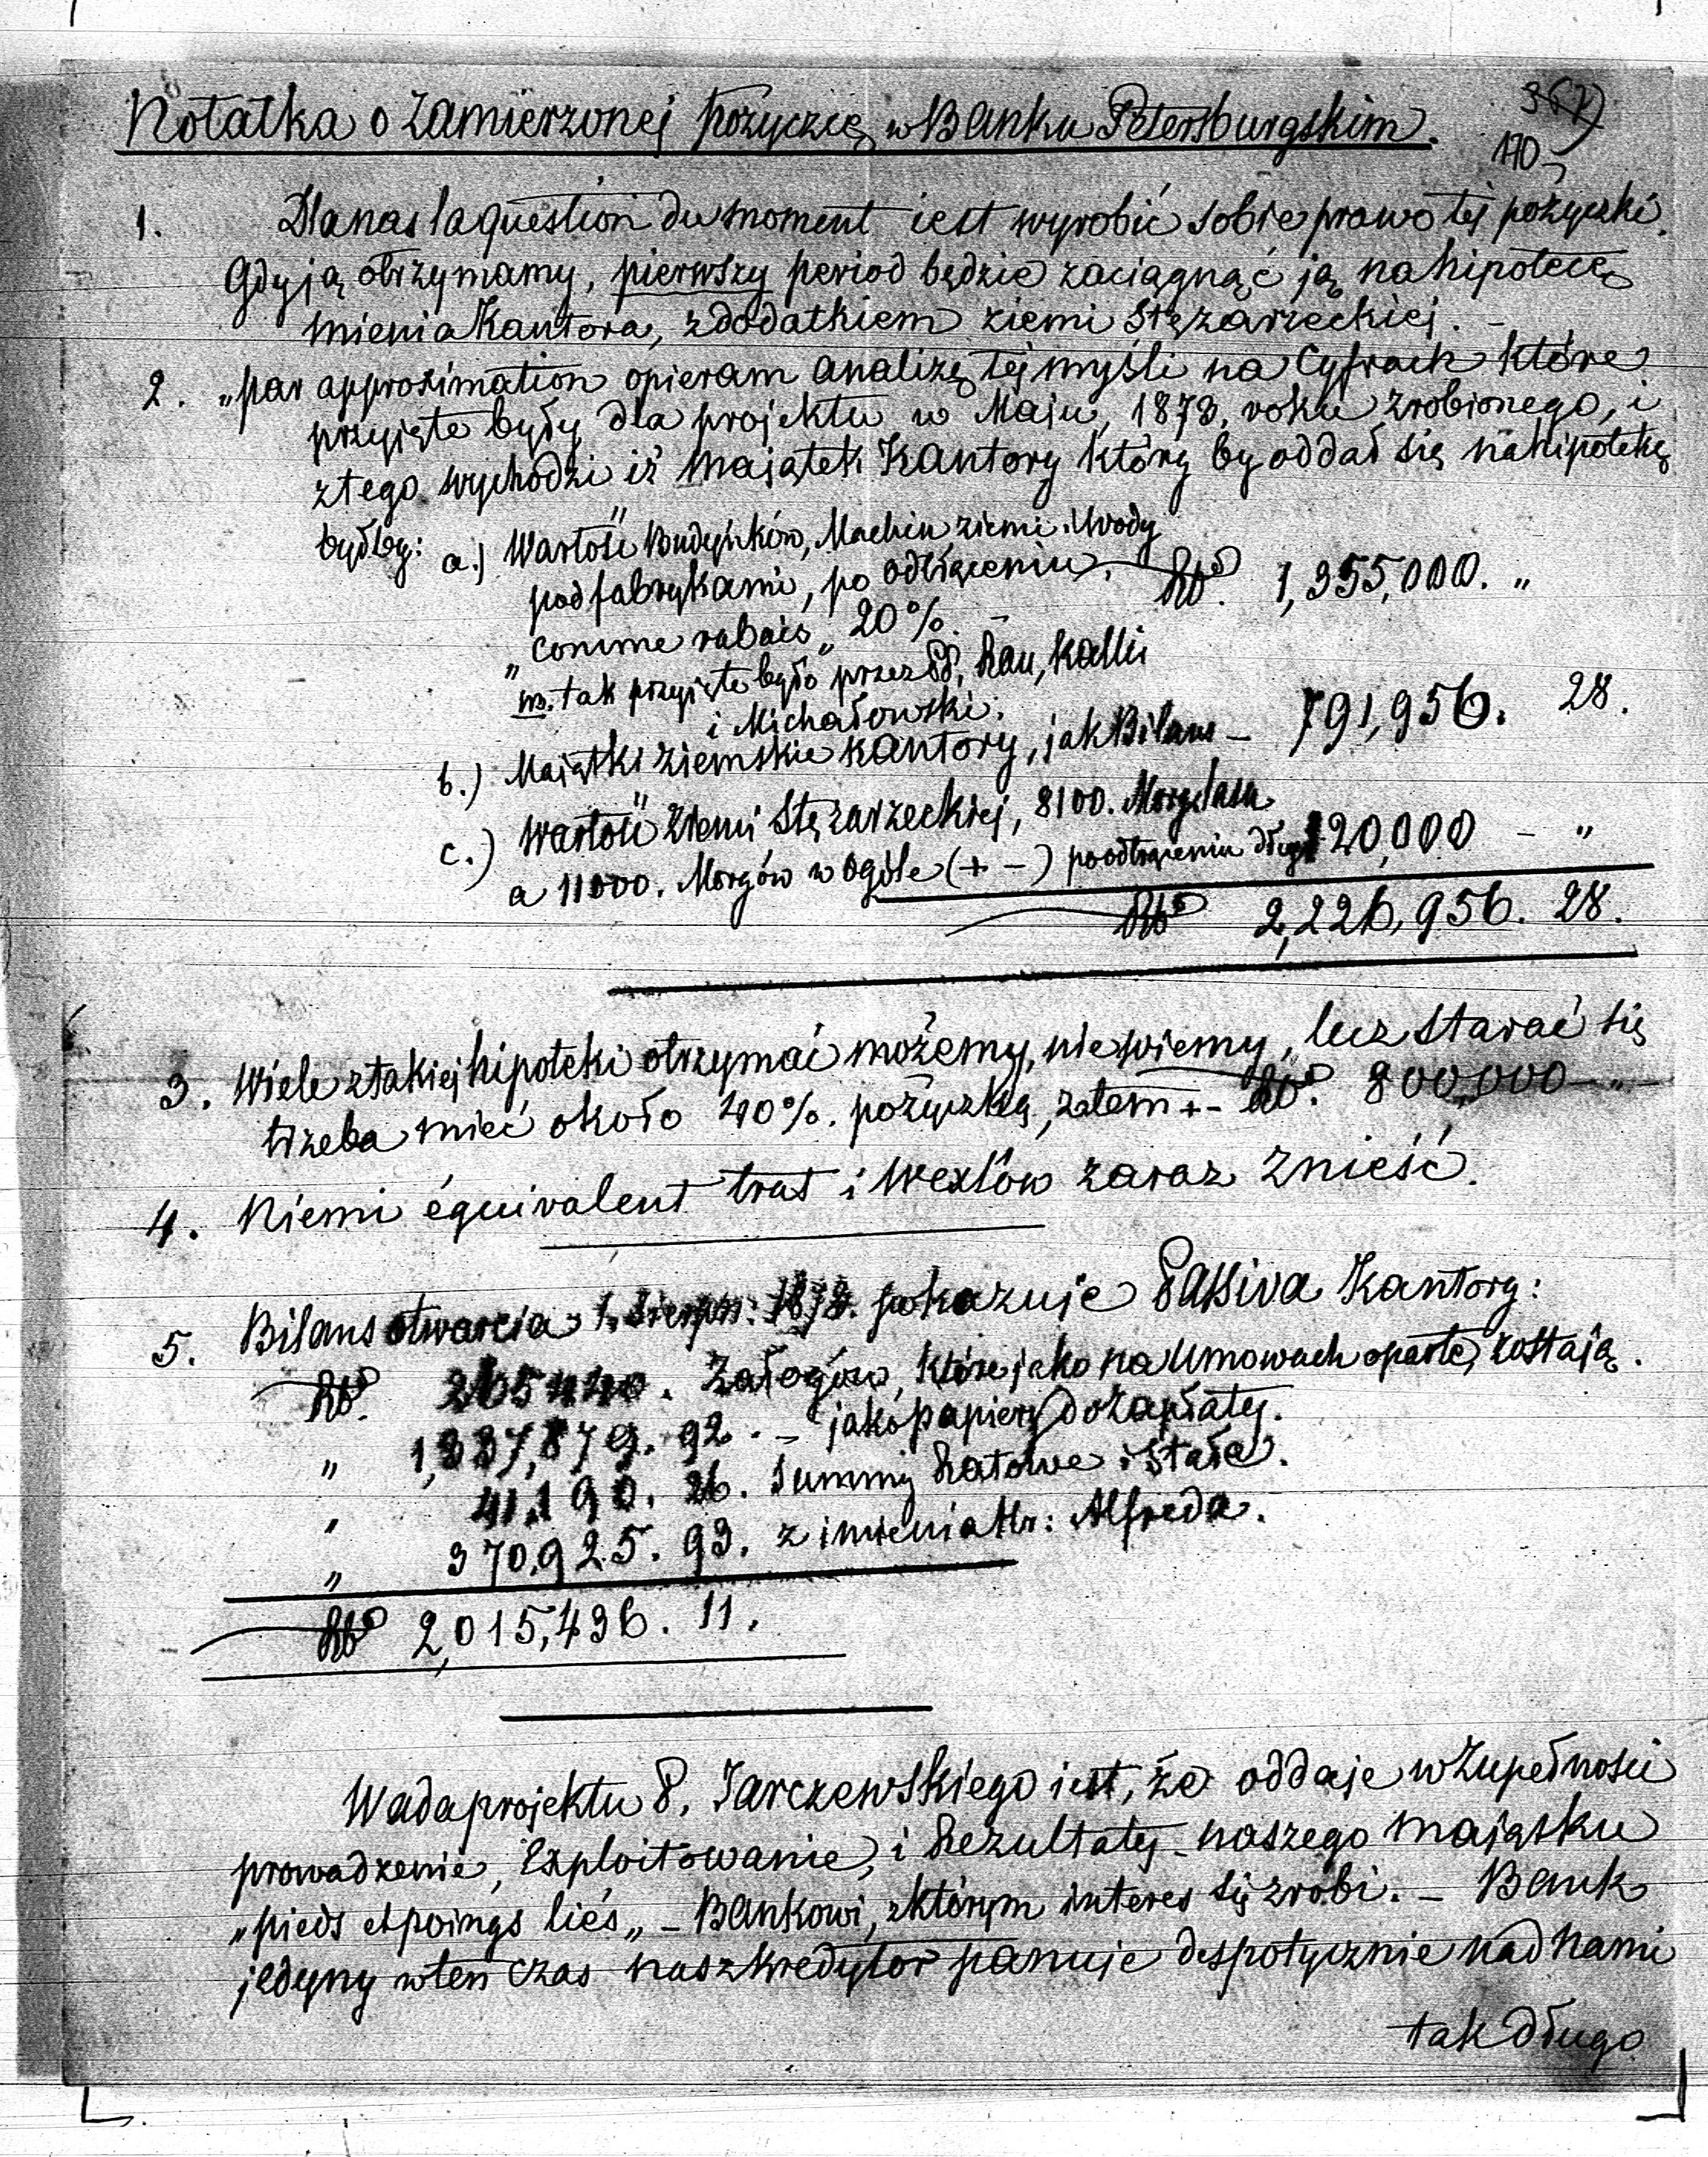 Notatka o zamierzonej pożyczcę w Banku Petersburgskim.
367
170
1. Dla nas la question du moment iest wyrobić sobie prawo tej pożyczki.
Gdy ją otrzymamy, pierwszy period będzie zaciągnąć ją na hipotecę
mienia Kantora, z dodatkiem ziemi Stężarzeckiej. –
2. „par approximation opieram analizę tej myśli na Cyfrach które
przyięte były dla projektu w Maju, 1873, roku zrobionego, i
z tego wychodzi iż majątek Kantory który by oddał się na hipotekę
byłby: a.) Wartość Budynków, Machin ziemi i Wody
pod fabrykami, po odtrąceniu, Rbs. 1,355,000. „
„comme rabais„ 20%. –
NB. tak przyięte było przez PP. Rau, Kalli
i Michałowski.
b.) Maiątki ziemskie Kantory, jak Bilans – 791,956. 28.
c.) Wartość ziemi Stężarzeckiej, 8100. Morg lasu
a 11000. Morgów w ogóle (+ –) po odtrąceniu długu 120,000 – „
Rbs 2,226,956. 28.
3. Wiele z takiej hipoteki otrzymać możemy, nie wiemy, lecz starać się
trzeba mieć około 40%. pożyczką, zatem +- Rbs. 800,000 – „ –
4. Niemi équivalent trat i Wexlów zaraz znieść.
5. Bilans otwarcia 1. Sierpn: 1873. pokazuje Passiva Kantory:
Rbs. 265440. Załogów, które jako na Umowach oparte, zostają.
„ 1,337,879. 92. – jako papiery do zapłaty.
„ 41,190. 26. Summy Ratowe i Stałe.
„ 370,925. 93. z imienia Hr: Alfreda.
Rbs 2,015,436. 11.
Wada projektu P. Jarczewskiego iest, że oddaje w Zupełności
prowadzenie, Exploitowanie, i Rezultaty – naszego majątku
„pieds et poings liés„ – Bankowi, z którym interes się zrobi. – Bank
jedyny w ten czas nasz kredytor panuje despotycznie nad nami
tak długo